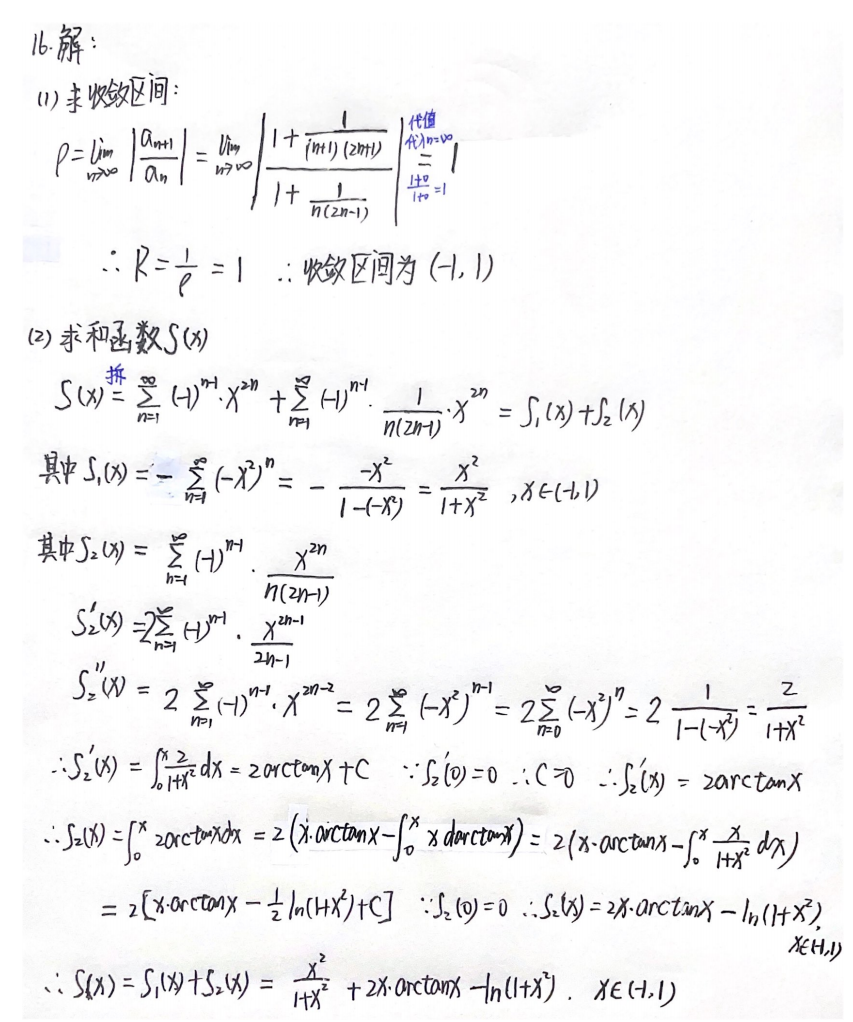 16.解：
(1) 求收敛区间：
ρ = lim_{n→∞} |a_{n+1}/a_n| = lim_{n→∞} |(1 + 1/((n+1)(2n+1)))/(1 + 1/(n(2n-1)))| = 1 代值 代入n=∞ (1+0)/(1+0) = 1
∴ R = 1/ρ = 1 ∴ 收敛区间为 (-1, 1)
(2) 求和函数S(x)
S(x) 拆= ∑_{n=1}^{∞} (-1)^{n-1}·x^{2n} + ∑_{n=1}^{∞} (-1)^{n-1}·1/(n(2n-1))·x^{2n} = S₁(x) + S₂(x)
其中 S₁(x) = -∑_{n=1}^{∞} (-x²)^n = - (-x²)/(1-(-x²)) = x²/(1+x²) , x∈(-1,1)
其中 S₂(x) = ∑_{n=1}^{∞} (-1)^{n-1}·x^{2n}/(n(2n-1))
S₂'(x) = 2∑_{n=1}^{∞} (-1)^{n-1}·x^{2n-1}/(2n-1)
S₂''(x) = 2∑_{n=1}^{∞} (-1)^{n-1}·x^{2n-2} = 2∑_{n=1}^{∞} (-x²)^{n-1} = 2∑_{n=0}^{∞} (-x²)^n = 2 1/(1-(-x²)) = 2/(1+x²)
∴ S₂'(x) = ∫₀^x 2/(1+x²) dx = 2arctanx + C ∵ S₂'(0) = 0 ∴ C=0 ∴ S₂'(x) = 2arctanx
∴ S₂(x) = ∫₀^x 2arctanxdx = 2(x·arctanx - ∫₀^x x darctanx) = 2(x·arctanx - ∫₀^x x/(1+x²) dx)
= 2[x·arctanx - 1/2 ln(1+x²) + C] ∵ S₂(0) = 0 ∴ S₂(x) = 2x·arctanx - ln(1+x²),
x∈(-1,1)
∴ S(x) = S₁(x) + S₂(x) = x²/(1+x²) + 2x·arctanx - ln(1+x²). x∈(-1,1)